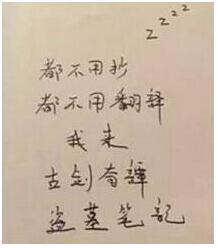 z z z z
都不用抄
都不用翻譯
我来
古剑奇譚
盗墓笔記